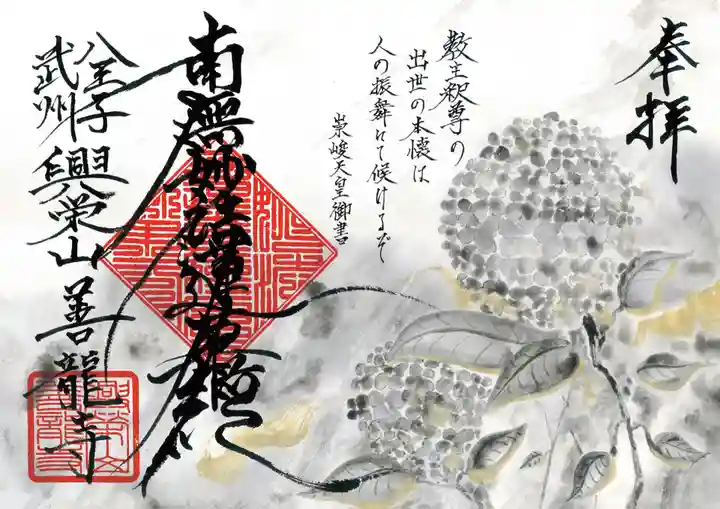 奉拝
教主釈尊の
出世の本懐は
人の振舞にて候けるぞ
崇峻天皇御書
南無妙法蓮華経
八王子
武州
興栄山
善龍寺